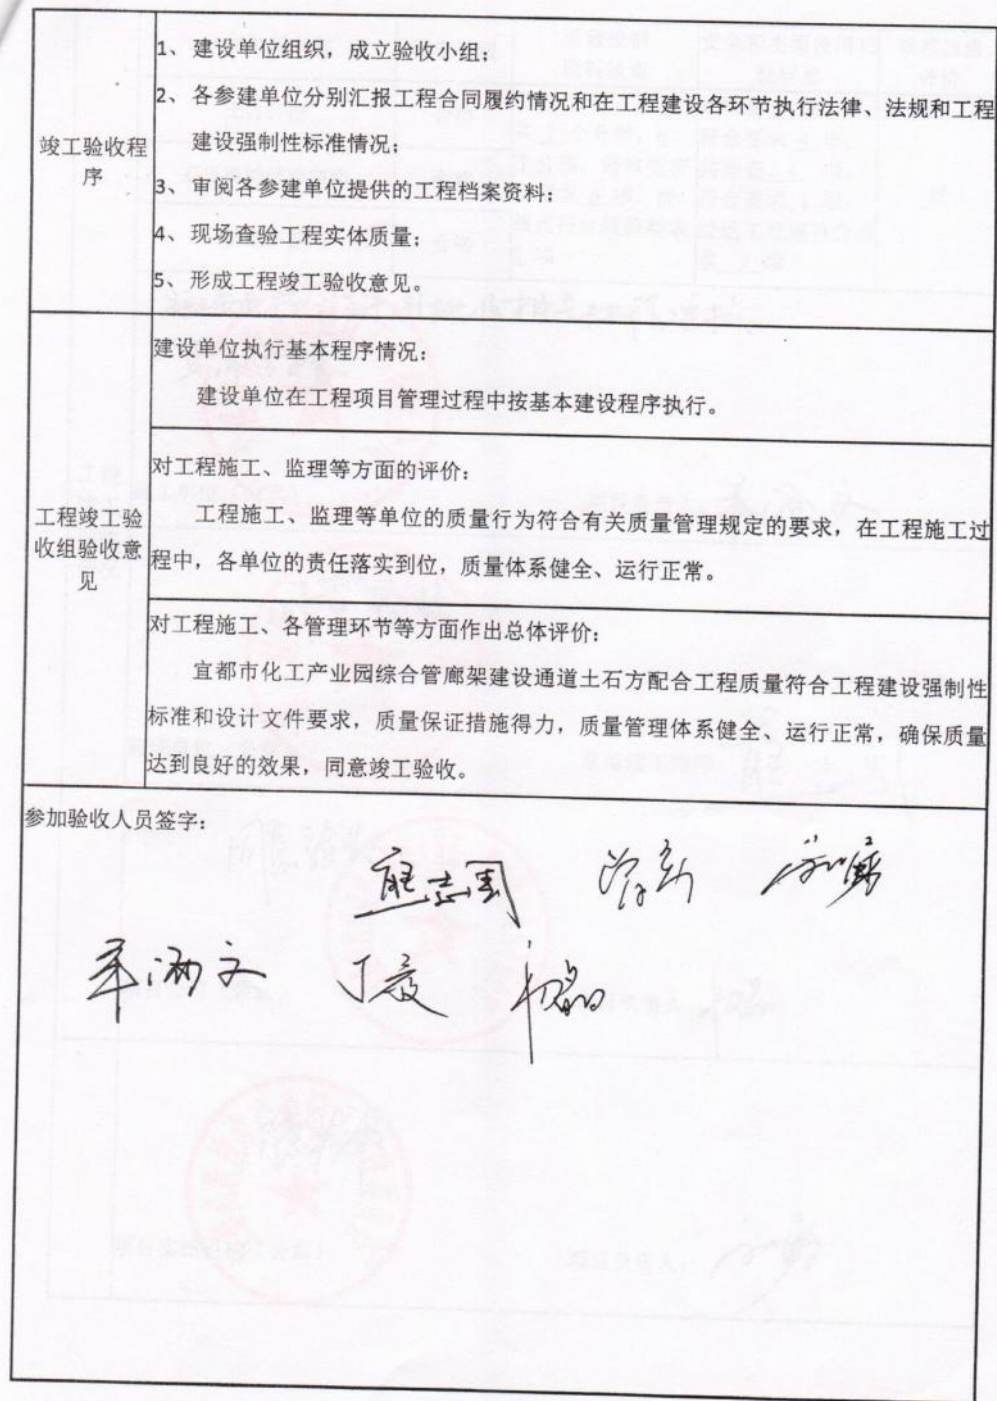 竣工验收程
序
1、建设单位组织，成立验收小组；
2、各参建单位分别汇报工程合同履约情况和在工程建设各环节执行法律、法规和工程
建设强制性标准情况；
3、审阅各参建单位提供的工程档案资料；
4、现场查验工程实体质量；
5、形成工程竣工验收意见。
工程竣工验
收组验收意
见
建设单位执行基本程序情况：
建设单位在工程项目管理过程中按基本建设程序执行。
对工程施工、监理等方面的评价：
工程施工、监理等单位的质量行为符合有关质量管理规定的要求，在工程施工过
程中，各单位的责任落实到位，质量体系健全、运行正常。
对工程施工、各管理环节等方面作出总体评价：
宜都市化工产业园综合管廊架建设通道土石方配合工程质量符合工程建设强制性
标准和设计文件要求，质量保证措施得力，质量管理体系健全、运行正常，确保质量
达到良好的效果，同意竣工验收。
参加验收人员签字：